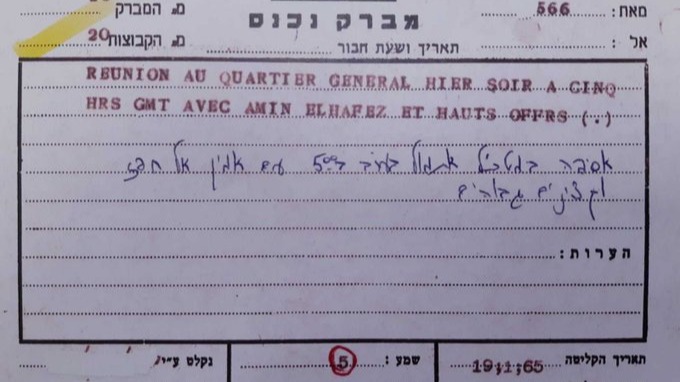 מאת: 566
מברק נכנס
מס המברק
אל:
תאריך ושעת חבור
מס הקבוצות 20
REUNION AU QUARTIER GENERAL HIER SOIR A CINQ
HRS GMT AVEC AMIN ELHAFEZ ET HAUTS OFFRS (.)
אסיפה במטכ"ל אתמול בערב ב-5 עם אמין אל חפז
וקצינים גבוהים
הערות:
תאריך הקליטה 19;1;65
שמע: 5
נקלט ע"י